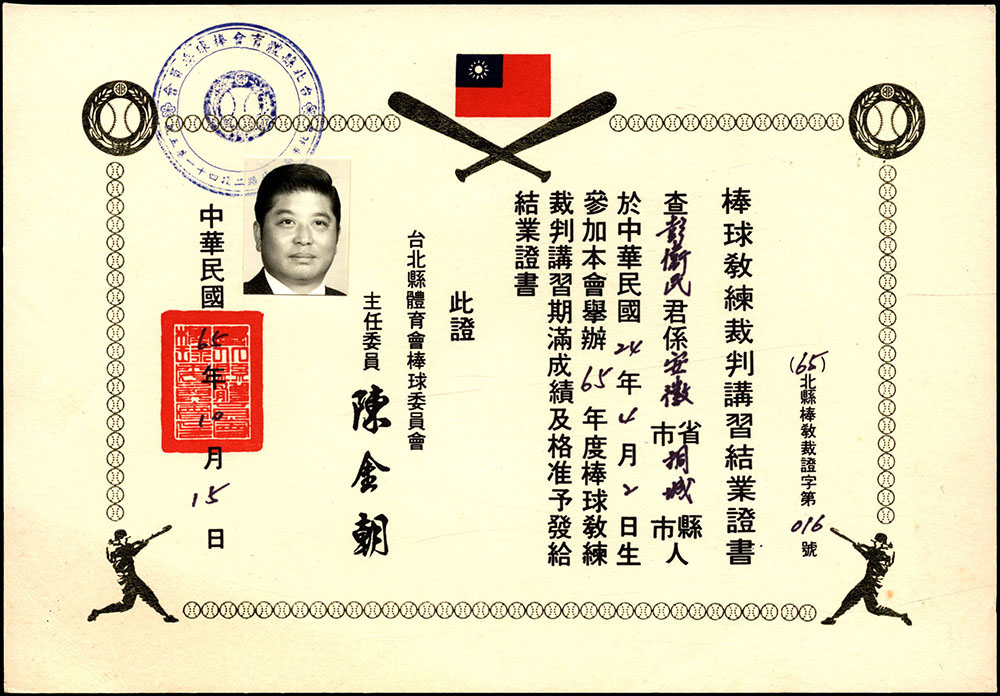 (65)北縣棒敎裁證字第016號
棒球敎練裁判講習結業證書
查彭衛民君係安徽省市桐城縣市人
於中華民國24年4月2日生
參加本會舉辦65年度棒球敎練
裁判講習期滿成績及格准予發給
結業證書
此證
台北縣體育會棒球委員會
主任委員 陳金朝
中華民國65年10月15日
台北縣體育會棒球委員會